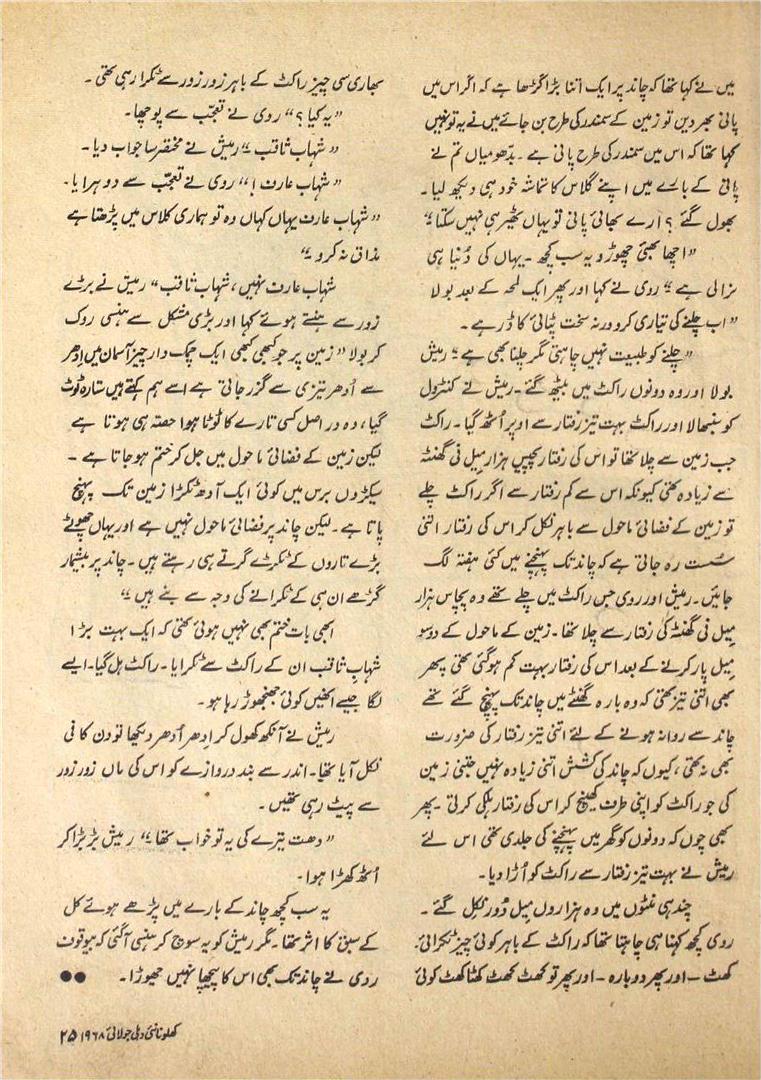 میں نے کہا تھا کہ چاند پر ایک اتنا بڑا گڑھا ہے کہ اگر اس میں
پانی بھر دیں تو زمین کے سمندر کی طرح بن جائے میں نے یہ تو نہیں
کہا تھا کہ اس میں سمندر کی طرح پانی ہے۔ بدھو میاں تم نے
پانی کے بارے میں اپنے گلاس کا تماشہ خود ہی دیکھ لیا۔
بھول گئے ؟ ارے بھائی پانی تو یہاں ٹھیر ہی نہیں سکتا“
”اچھا بھئی چھوڑو یہ سب کچھ۔ یہاں کی دُنیا ہی
نرالی ہے“ روی نے کہا اور پھر ایک لمحہ کے بعد بولا
”اب چلنے کی تیاری کرو ورنہ سخت پٹائی کا ڈر ہے۔
”چلنے کو طبیعت نہیں چاہتی مگر چلنا بھی ہے“ رمیش
بولا اور وہ دونوں راکٹ میں بیٹھ گئے۔ رمیش نے کنٹرول
کو سنبھالا اور راکٹ بہت تیز رفتار سے اوپر اُٹھ گیا۔ راکٹ
جب زمین سے چلا تھا تو اس کی رفتار پچیس ہزار میل فی گھنٹہ
سے زیادہ تھی کیونکہ اس سے کم رفتار سے اگر راکٹ چلے
تو زمین کے فضائی ماحول سے باہر نکل کر اس کی رفتار اتنی
سُست رہ جاتی ہے کہ چاند تک پہنچنے میں کئی ہفتہ لگ
جائیں۔ رمیش اور روی جس راکٹ میں چلے تھے وہ پچاس ہزار
میل فی گھنٹہ کی رفتار سے چلا تھا۔ زمین کے ماحول کے دوسو
میل پار کرنے کے بعد اس کی رفتار بہت کم ہوگئی تھی پھر
بھی اتنی تیز تھی کہ وہ بارہ گھنٹے میں چاند تک پہنچ گئے تھے
چاند سے روانہ ہونے کے لئے اتنی تیز رفتار کی ضرورت
بھی نہ تھی، کیوں کہ چاند کی کشش اتنی زیادہ نہیں جتنی زمین
کی جو راکٹ کو اپنی طرف کھینچ کر اس کی رفتار ہلکی کرتی۔ پھر
بھی چوں کہ دونوں کو گھر میں پہنچنے کی جلدی تھی اس لئے
رمیش نے بہت تیز رفتار سے راکٹ کو اُڑا دیا۔
چند ہی منٹوں میں وہ ہزاروں میل دُور نکل گئے۔
روی کچھ کہنا ہی چاہتا تھا کہ راکٹ کے باہر کوئی چیز ٹکرائی۔
کھٹ – اور پھر دوبارہ – اور پھر تو کھٹ کھٹ کھٹا کھٹ کوئی
بھاری سی چیز راکٹ کے باہر زور زور سے ٹکرا رہی تھی۔
”یہ کیا ؟“ روی نے تعجب سے پوچھا۔
”شہاب ثاقب“ رمیش نے مختصر سا جواب دیا۔
”شہاب عارف !“ روی نے تعجب سے دوہرایا۔
”شہاب عارف یہاں کہاں وہ تو ہماری کلاس میں پڑھتا ہے
مذاق نہ کرو“
شہاب عارف نہیں، شہاب ثاقب“ رمیش نے بڑے
زور سے ہنستے ہوئے کہا اور بڑی مشکل سے ہنسی روک
کر بولا ”زمین پر جو کبھی کبھی ایک چمک دار چیز آسمان میں اِدھر
سے اُدھر تیزی سے گزر جاتی ہے اسے ہم کہتے ہیں ستارہ ٹوٹ
گیا، وہ دراصل کسی تارے کا ٹوٹا ہوا حصہ ہی ہوتا ہے
لیکن زمین کے فضائی ماحول میں جل کر ختم ہوجاتا ہے۔
سیکڑوں برس میں کوئی ایک آدھ ٹکڑا زمین تک پہنچ
پاتا ہے۔ لیکن چاند پر فضائی ماحول نہیں ہے اور یہاں چھوٹے
بڑے تاروں کے ٹکڑے گرتے ہی رہتے ہیں۔ چاند پر بیشمار
گڑھے ان ہی کے ٹکرانے کی وجہ سے بنے ہیں“
ابھی بات ختم بھی نہیں ہوئی تھی کہ ایک بہت بڑا
شہابِ ثاقب ان کے راکٹ سے ٹکرایا۔ راکٹ ہل گیا۔ ایسے
لگا جیسے انھیں کوئی جھنجھوڑ رہا ہو۔
رمیش نے آنکھ کھول کر اِدھر اُدھر دیکھا تو دن کافی
نکل آیا تھا۔ اندر سے بند دروازے کو اس کی ماں زور زور
سے پیٹ رہی تھیں۔
”دھت تیرے کی یہ تو خواب تھا“ رمیش بڑبڑا کر
اُٹھ کھڑا ہوا۔
یہ سب کچھ چاند کے بارے میں پڑھے ہوئے کل
کے سبق کا اثر تھا۔ مگر رمیش کو یہ سوچ کر ہنسی آگئی کہ بیوقوف
روی نے چاند تک بھی اس کا پیچھا نہیں چھوڑا۔ ●●
کھلونا نئی دہلی جولائی ۱۹۶۸ ۲۵